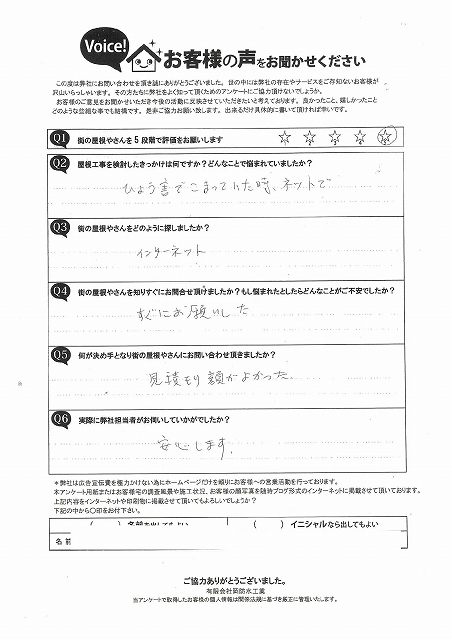 Voice! お客様の声をお聞かせください
この度は弊社にお問い合わせを頂き誠にありがとうございました。世の中には弊社の存在やサービスをご存知ないお客様が
沢山いらっしゃいます。その方たちに弊社をよく知って頂くためのアンケートにご協力頂けないでしょうか。
お客様のご意見をお聞かせいただき今後の活動に反映させていただきたいと考えております。良かったこと、嬉しかったこと
どのような些細な事でも結構です。是非ご協力お願い致します。出来るだけ具体的に書いて頂ければ幸いです。
Q1 街の屋根やさんを5段階で評価をお願いします ☆ ☆ ☆ ☆ ☆
Q2 屋根工事を検討したきっかけは何ですか？どんなことで悩まれていましたか？
ひょう害でこまっていた時、ネットで
Q3 街の屋根やさんをどのように探しましたか？
インターネット
Q4 街の屋根やさんを知りすぐにお問合せ頂けましたか？もし悩まれたとしたらどんなことがご不安でしたか？
すぐにお願いした
Q5 何が決め手となり街の屋根やさんにお問い合わせ頂きましたか？
見積もり額がよかった
Q6 実際に弊社担当者がお伺いしていかがでしたか？
安心します。
＊弊社は広告宣伝費を極力かけない為にホームページだけを頼りにお客様への営業活動を行っております。
本アンケート用紙またはお客様宅の調査風景や施工状況、お客様の顔写真を随時ブログ形式のインターネットに掲載させて頂いております。
上記内容をインターネットや印刷物に掲載させて頂いてもよろしいでしょうか？
下記の中から〇印をお付下さい。
（ ） 名前を出してもよい （ ） イニシャルなら出してもよい
名前
ご協力ありがとうございました。
有限会社笑防水工業
当アンケートで取得したお客様の個人情報は関係法規に基づき厳正に管理いたします。